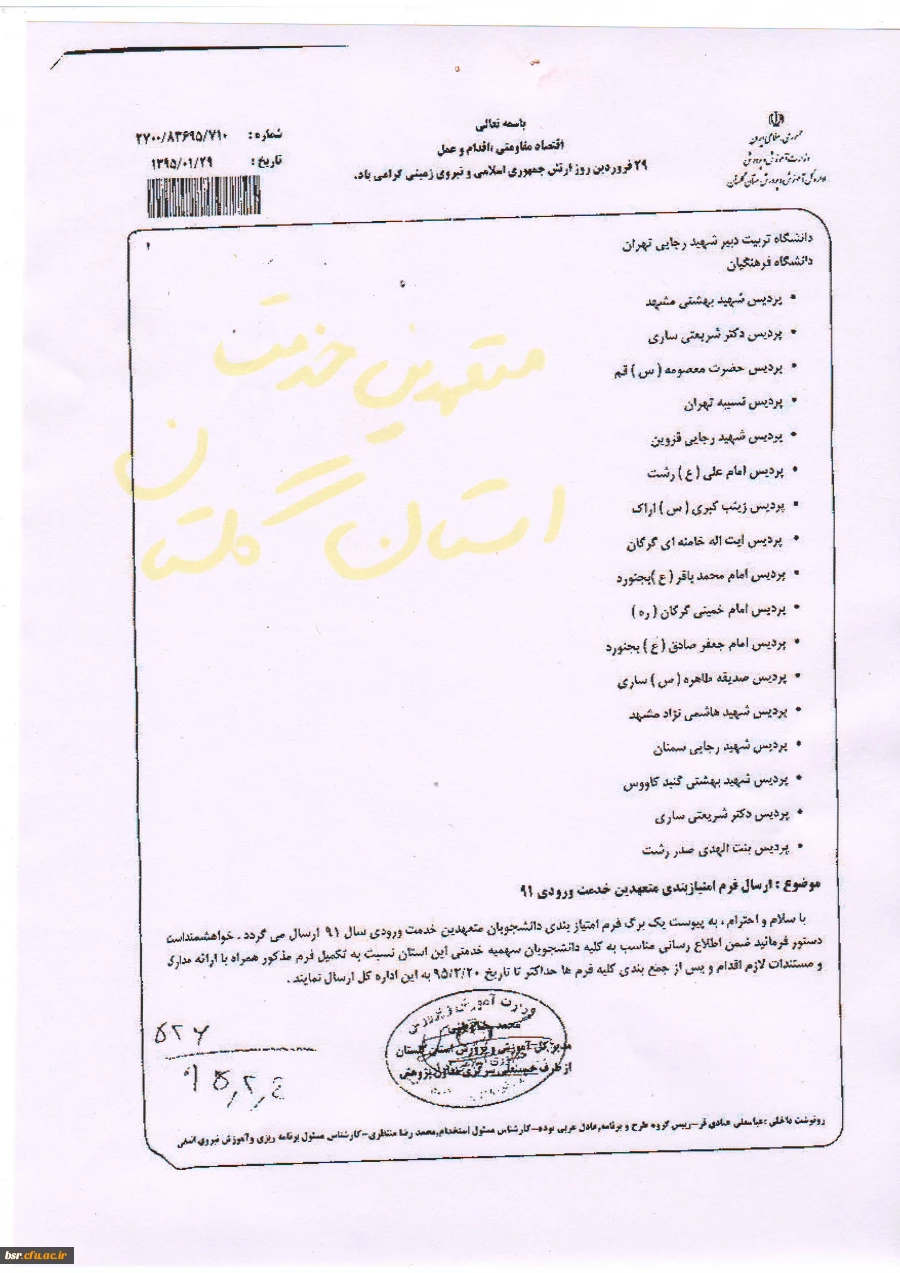 باسمه تعالی
اقتصاد مقاومتی ،اقدام و عمل
۲۹ فروردین روز ارتش جمهوری اسلامی و نیروی زمینی گرامی باد.
جمهوری اسلامی ایران
وزارت آموزش و پرورش
اداره کل آموزش و پرورش استان گلستان
شماره : ۲۷۰۰/۸۳۶۹۵/۷۱۰
تاریخ : ۱۳۹۵/۰۱/۲۹
۱
دانشگاه تربیت دبیر شهید رجایی تهران
دانشگاه فرهنگیان
• پردیس شهید بهشتی مشهد
• پردیس دکتر شریعتی ساری
• پردیس حضرت معصومه ( س ) قم
• پردیس نسیبه تهران
• پردیس شهید رجایی قزوین
• پردیس امام علی ( ع ) رشت
• پردیس زینب کبری ( س ) اراک
• پردیس ایت اله خامنه ای گرگان
• پردیس امام محمد باقر ( ع )بجنورد
• پردیس امام خمینی گرگان ( ره )
• پردیس امام جعفر صادق ( ع ) بجنورد
• پردیس صدیقه طاهره ( س ) ساری
• پردیس شهید هاشمی نژاد مشهد
• پردیس شهید رجایی سمنان
• پردیس شهید بهشتی گنبد کاووس
• پردیس دکتر شریعتی ساری
• پردیس بنت الهدی صدر رشت
متعهدین خدمت
استان گلستان
موضوع : ارسال فرم امتیازبندی متعهدین خدمت ورودی ۹۱
با سلام و احترام ، به پیوست یک برگ فرم امتیاز بندی دانشجویان متعهدین خدمت ورودی سال ۹۱ ارسال می گردد . خواهشمنداست
دستور فرمائید ضمن اطلاع رسانی مناسب به کلیه دانشجویان سهمیه خدمتی این استان نسبت به تکمیل فرم مذکور همراه با ارائه مدارک
و مستندات لازم اقدام و پس از جمع بندی کلیه فرم ها حداکثر تا تاریخ ۹۵/۲/۲۰ به این اداره کل ارسال نمایند .
وزارت آموزش و پرورش
محمد
مدیر کل آموزش و پرورش استان گلستان
از طرف معاون پژوهشی
۵۲۶
۹۵,۲,۴
رونوشت داخلی :عباسعلی عبادی فر-رییس گروه طرح و برنامه,عادل عربی بوده-کارشناس مسئول استخدام,محمد رضا منتظری-کارشناس مسئول برنامه ریزی وآموزش نیروی انسانی
bsr.cfu.ac.ir